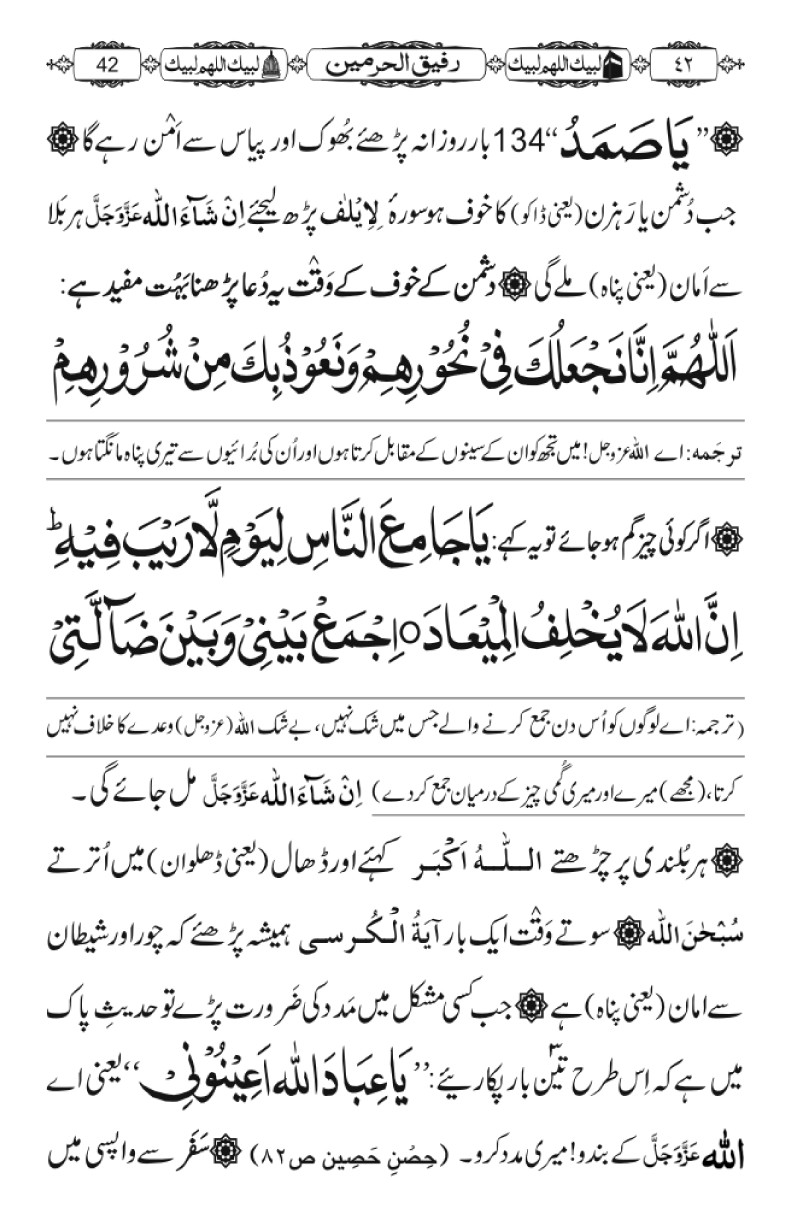 ٤٢ لبیك اللھم لبیك رفیق الحرمین لبیك اللھم لبیك 42
”یَا صَمَدُ“ 134 بار روزانہ پڑھئے بُھوک اور پیاس سے اَمْن رہے گا
جب دُشمن یا رَہزن (یعنی ڈاکو) کا خوف ہو سورۂ لِاِیْلٰف پڑھ لیجئے اِنْ شَآءَ اللہ عَزَّوَجَلَّ ہر بَلا
سے اَمان (یعنی پناہ) ملے گی دشمن کے خوف کے وَقْت یہ دُعا پڑھنا بَہُت مفید ہے:
اَللّٰھُمَّ اِنَّا نَجْعَلُكَ فِیْ نُحُوْرِھِمْ وَنَعُوْذُبِكَ مِنْ شُرُوْرِھِمْ
ترجَمہ: اے اللہ عزوجل! میں تجھ کو ان کے سینوں کے مقابل کرتا ہوں اور اُن کی بُرائیوں سے تیری پناہ مانگتا ہوں۔
اگر کوئی چیز گم ہو جائے تو یہ کہے: یَا جَامِعَ النَّاسِ لِیَوْمٍ لَّا رَیْبَ فِیْهِ ؕ
اِنَّ اللهَ لَا یُخْلِفُ الْمِیْعَادَ ○ اِجْمَعْ بَیْنِیْ وَ بَیْنَ ضَآلَّتِیْ
(ترجمہ: اے لوگوں کو اُس دن جمع کرنے والے جس میں شک نہیں، بے شک اللہ (عزوجل) وعدے کا خلاف نہیں
کرتا، (مجھے) میرے اور میری گُمی چیز کے درمیان جمع کردے) اِنْ شَآءَ اللہ عَزَّوَجَلَّ مل جائے گی۔
ہر بُلندی پر چڑھتے اللّٰہُ اَکْبَر کہئے اور ڈھال (یعنی ڈھلوان) میں اُترتے
سُبْحٰنَ اللہ سوتے وَقْت ایک بار آیَۃُ الْکُرسی ہمیشہ پڑھئے کہ چور اور شیطان
سے امان (یعنی پناہ) ہے جب کسی مشکل میں مَدد کی ضَرورت پڑے تو حدیثِ پاک
میں ہے کہ اِس طرح تین بار پکاریئے: ’’یَا عِبَادَ اللهِ اَعِیْنُوْنِیْ‘‘ یعنی اے
اللہ عَزَّوَجَلَّ کے بندو! میری مدد کرو۔ (حِصْنِ حَصِین ص۸۲) سَفَر سے واپسی میں